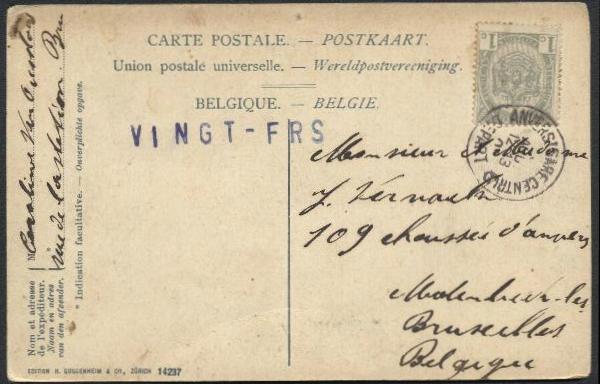 CARTE POSTALE. — POSTKAART.
Union postale universelle. — Wereldpostvereeniging.
BELGIQUE. — BELGIE.
VINGT-FRS
1 1
ANVERS (GARE CENTRALE)
DEPART
Monsieur et Madame
J. Vernaelen
109 chaussée d'anvers
Molenbeek-lez
Bruxelles
Belgique
Nom et adresse
de l'expéditeur.
Naam en adres
van den afzender.
M Caroline Van
rue de la station
* Indication facultative. — Onverplichte opgave.
EDITION H. GUGGENHEIM & Co., ZÜRICH 14237